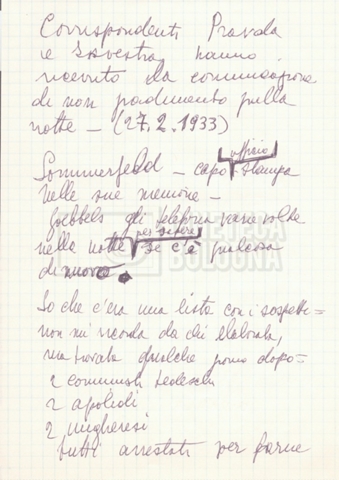 Corrispondenti Pravda
e Isvestia hanno
ricevuto la comunicazione
di non pubblicarlo nella
notte – (27.2.1933)
Sommerfeld – capo ufficio stampa
nelle sue memorie –
Goebbels gli telefona varie volte
nella notte per sapere se c'è qualcosa
di nuovo.
So che c'era una lista con i sospetti =
non mi ricordo da chi elaborata,
ma trovata qualche giorno dopo =
2 comunisti tedeschi
2 apolidi
2 ungheresi
tutti arrestati per farne
CINETECA
BOLOGNA